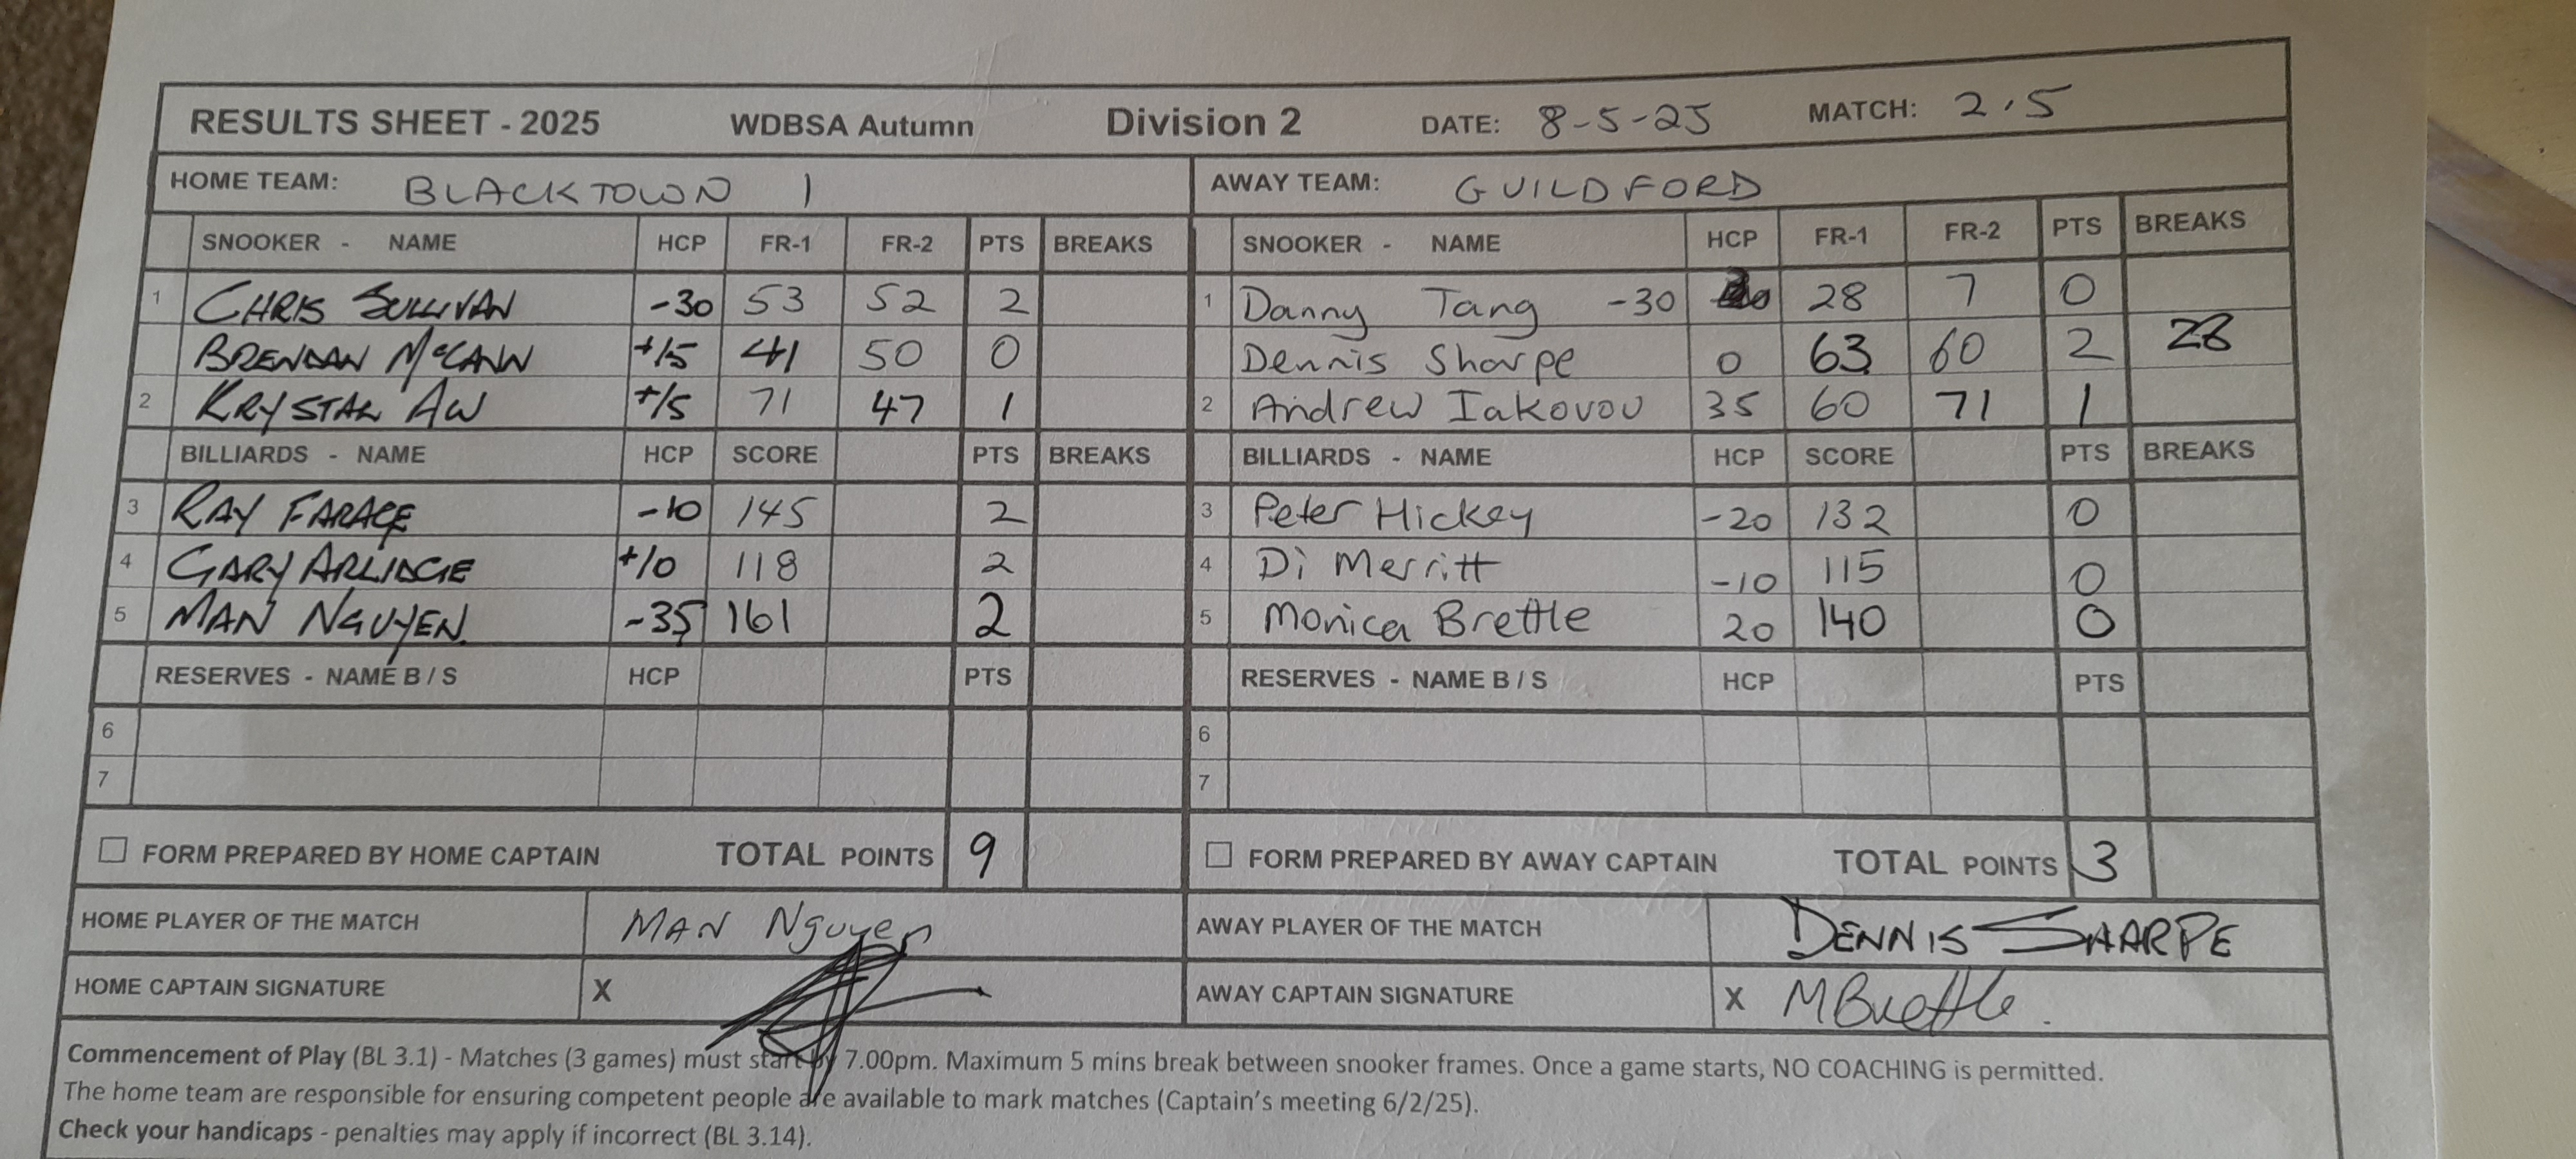 RESULTS SHEET - 2025 WDBSA Autumn Division 2 DATE: 8-5-25 MATCH: 2.5
HOME TEAM: BLACKTOWN 1 AWAY TEAM: GUILDFORD
SNOOKER - NAME HCP FR-1 FR-2 PTS BREAKS SNOOKER - NAME HCP FR-1 FR-2 PTS BREAKS
1 CHRIS SULLIVAN -30 53 52 2 1 Danny Tang -30 28 7 0
BRENDAN McCANN +15 41 50 0 Dennis Sharpe 0 63 60 2 28
2 KRYSTAL AW +15 71 47 1 2 Andrew Iakovou 35 60 71 1
BILLIARDS - NAME HCP SCORE PTS BREAKS BILLIARDS - NAME HCP SCORE PTS BREAKS
3 RAY FARACE -10 145 2 3 Peter Hickey -20 132 0
4 GARY ARLIDGE +10 118 2 4 Di Merritt -10 115 0
5 MAN NGUYEN -35 161 2 5 Monica Brettle 20 140 0
RESERVES - NAME B / S HCP PTS RESERVES - NAME B / S HCP PTS
6 6
7 7
FORM PREPARED BY HOME CAPTAIN TOTAL POINTS 9 FORM PREPARED BY AWAY CAPTAIN TOTAL POINTS 3
HOME PLAYER OF THE MATCH MAN Nguyen AWAY PLAYER OF THE MATCH DENNIS SHARPE
HOME CAPTAIN SIGNATURE X AWAY CAPTAIN SIGNATURE X MBrettle.
Commencement of Play (BL 3.1) - Matches (3 games) must start by 7.00pm. Maximum 5 mins break between snooker frames. Once a game starts, NO COACHING is permitted.
The home team are responsible for ensuring competent people are available to mark matches (Captain's meeting 6/2/25).
Check your handicaps - penalties may apply if incorrect (BL 3.14).